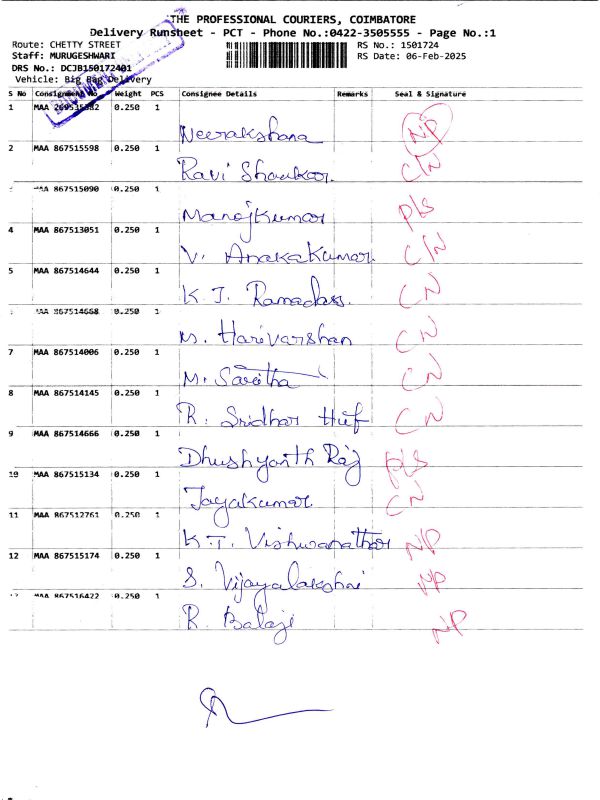 THE PROFESSIONAL COURIERS, COIMBATORE
Delivery Runsheet - PCT - Phone No.:0422-3505555 - Page No.:1
Route: CHETTY STREET RS No.: 1501724
Staff: MURUGESHWARI RS Date: 06-Feb-2025
DRS No.: DCJB150172401
Vehicle: Big Bag Delivery
S No Consignment No Weight PCS Consignee Details Remarks Seal & Signature
1 MAA 0.250 1
Neerakshana NP
2 MAA 867515598 0.250 1
Ravi Shankar C/N
MAA 867515090 0.250 1
Manojkumar P/s
4 MAA 867513051 0.250 1
V. Anakakumar. C/N
5 MAA 867514644 0.250 1
K J. Ramadass. CN
MAA 867514668 0.250 1
M. Harivarshan CN
7 MAA 867514006 0.250 1
M. Savitha CN
8 MAA 867514145 0.250 1
R. Sridhar Huf CN
9 MAA 867514666 0.250 1
Dhushyanth Raj P/s
10 MAA 867515134 0.250 1
Jayakumar CN
11 MAA 867512761 0.250 1
K.T. Vishwanathan NP
12 MAA 867515174 0.250 1
S. Vijayalakshmi NP
MAA 867516422 0.250 1
R. Balaji NP